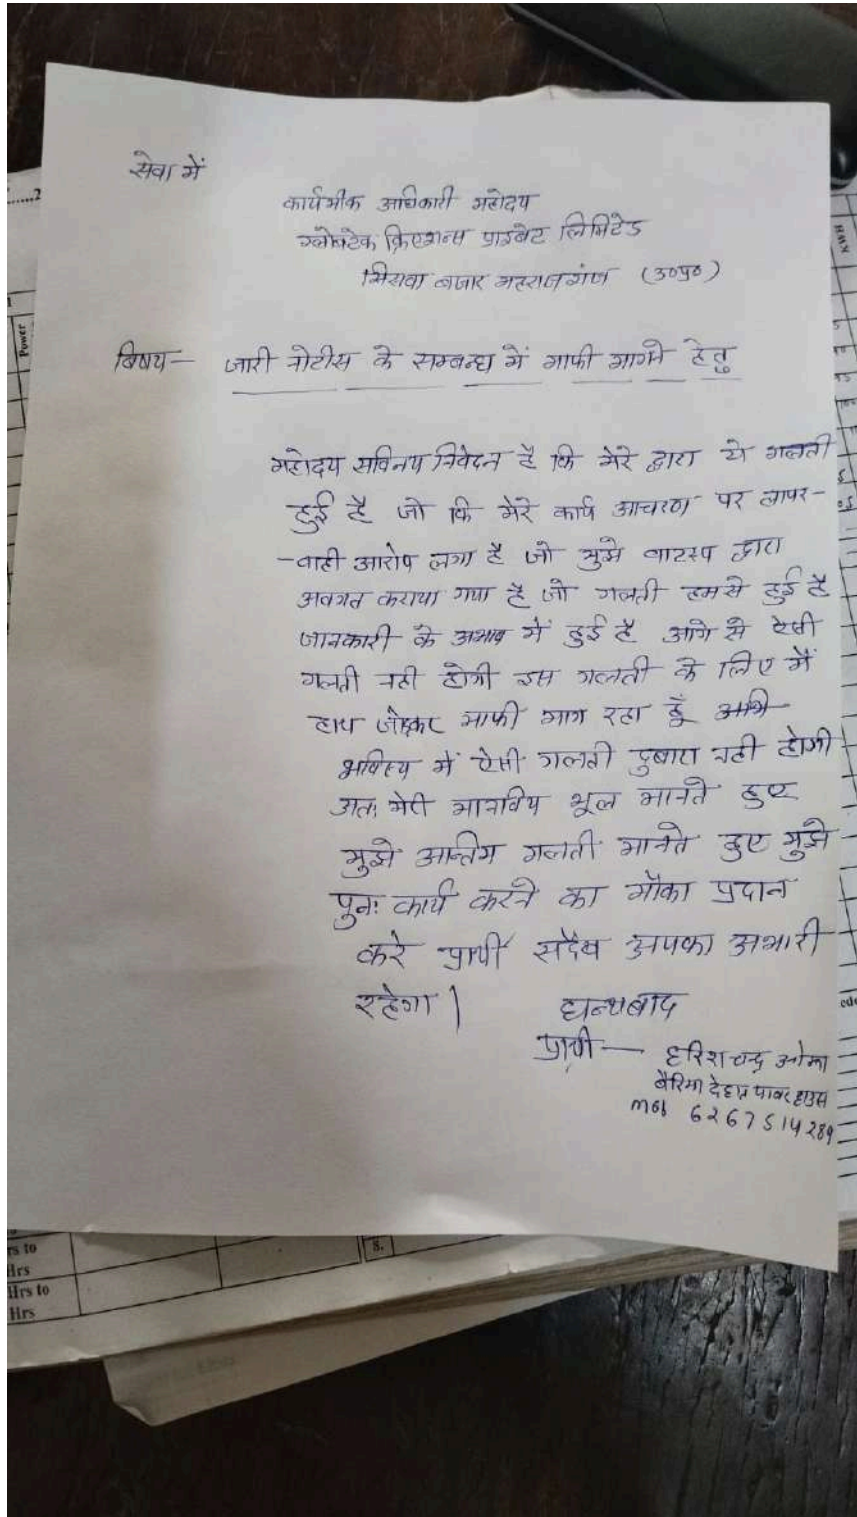 सेवा में
कार्यमीक अधिकारी महोदय
ग्लोबटेक क्रिएशन्स प्राइबेट लिमिटेड
सिसवा बजार महराजगंज (उ०प्र०)
बिषय — जारी नोटीस के सम्बन्ध में माफी मागने हेतु
महोदय सविनय निवेदन है कि मेरे द्वारा ये गलती
हुई है जो कि मेरे कार्य आचरण पर लापर-
-वाही आरोप लगा है जो मुझे वाटस्प द्वारा
अवगत कराया गया है जो गलती हमसे हुई है
जानकारी के अभाव में हुई है आगे से ऐसी
गलती नही होगी इस गलती के लिए मैं
हाथ जोड़कर माफी माग रहा हूँ
भविष्य में ऐसी गलती दुबारा नही होगी
अतः मेरी मानविय भूल मानते हुए
मुझे अन्तिम गलती मानते हुए मुझे
पुनः कार्य करने का मौका प्रदान
करे प्रार्थी सदैव आपका अभारी
रहेगा |
धन्यबाद
प्रार्थी — हरिश चन्द्र ओझा
बैरिया देहात पावर हाउस
mob 6267514289
.....2
Power
HMX
rs to
Hrs
Hrs to
Hrs
8.